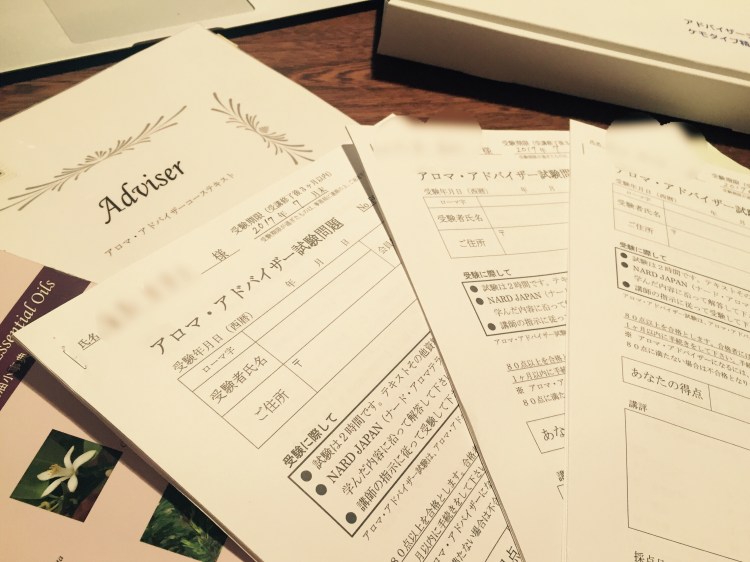 アドバイザー
ケモタイプ精
Adviser
アロマ・アドバイザーコーステキスト
Essential Oils
氏名
様
受験期限(受講終了後3ヶ月以内)
2017年 7月
アロマ・アドバイザー試験問題
No.
受験年月日(西暦) 年 月 日
ローマ字
受験者氏名
ご住所 〒
受験に際して
●試験は2時間です。テキストその他資
●NARD JAPAN(ナード・アロマテル
学んだ内容に沿って解答して下さ
●講師の指示に従って受験して下
アロマ・アドバイザー試験は、アロマ
80点以上を合格とします。合格
1ヶ月以内に手続きをして下さい
アロマ・アドバイザーになる
80点に満たない場合は不合
様
受験期限(受講終了後3ヶ
2017年 7
アロマ・アドバイザー試験問
受験年月日(西暦) 年 月
ローマ字
受験者氏名
ご住所 〒
受験に際して
●試験は2時間です。テキス
●NARD JAPAN(ナード
学んだ内容に沿って解
●講師の指示に従って受
アロマ・アドバイザー試験は
80点以上を合格とし
1ヶ月以内に手続きを
※ アロマ・アドバイザ
80点に満たない場
あな
講
様
受験期限
2017
アロマ・アドバイザー試
受験年月日(西暦) 年
ローマ字
受験者氏名
ご住所 〒
受験に際して
●試験は2時間です。テキスト
●NARD JAPAN(ナード
学んだ内容に沿って解答して
●講師の指示に従って受験し
アロマ・アドバイザー試験は、アロマ
80点以上を合格とします。合格者に
1ヶ月以内に手続きをして下さい。手
※ アロマ・アドバイザーになるには、
80点に満たない場合は不合格とな
あなたの得点
講評
採点